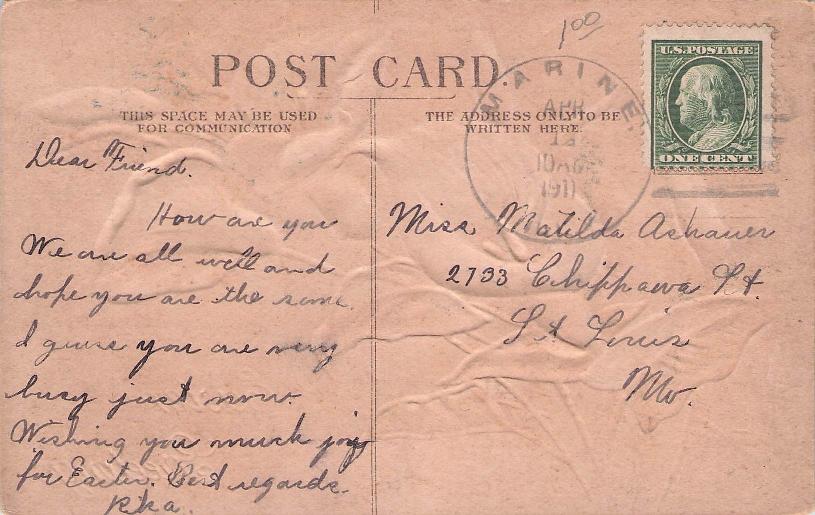 1.00
POST CARD.
U.S. POSTAGE
ONE CENT
MARINE
APR
1911
THIS SPACE MAY BE USED
FOR COMMUNICATION
THE ADDRESS ONLY TO BE
WRITTEN HERE.
Dear Friend.
How are you
We are all well and
hope you are the same.
I guess you are very
busy just now.
Wishing you much joy
for Easter. Best regards.
Miss Matilda Ashauer
2733 Chippawa St.
St Louis
Mo.